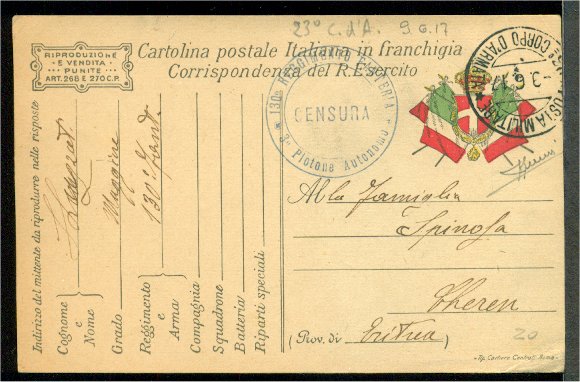 23° C. d'A. 9.6.17
RIPRODUZIONE
E VENDITA
PUNITE
ART. 268 E 270 C.P.
Cartolina postale Italiana in franchigia
Corrispondenza del R. Esercito
130° REGGIMENTO FANTERIA
CENSURA
3° Plotone Autonomo
POSTA MILITARE
23° CORPO D'ARMATA
Indirizzo del mittente da riprodurre nelle risposte
Cognome
e
Nome
Grado
Maggiore
Reggimento
e
Arma
130° Fant.
Compagnia
Squadrone
Batteria
Riparti speciali
Alla Famiglia
Spinosa
Cheren
(Prov. di Eritrea)
20
Tip. Cartiere Centrali, Roma